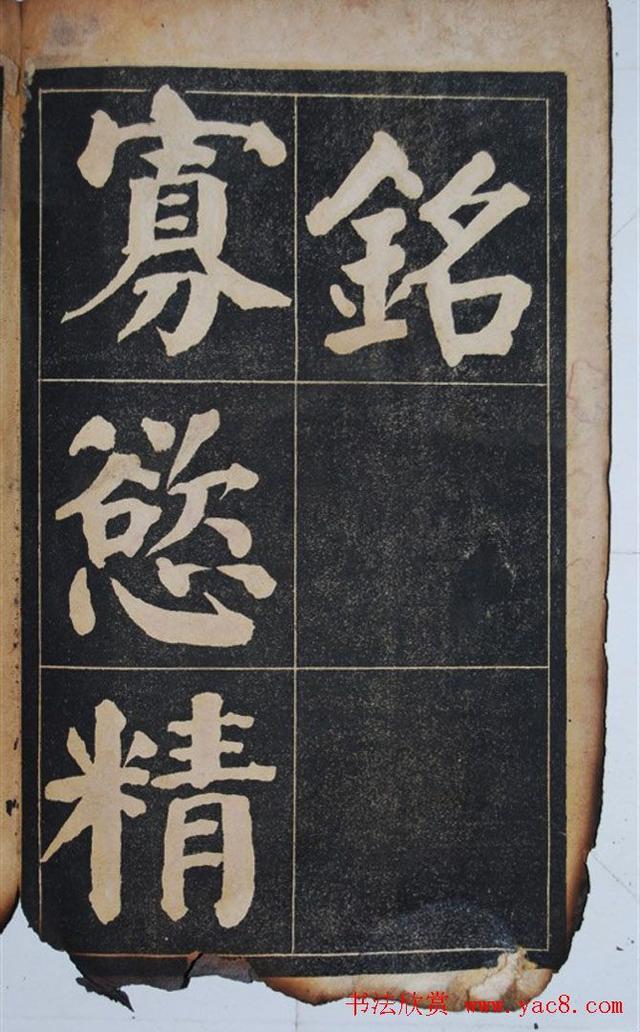 銘
寡慾精
书法欣赏 www.yac8.com